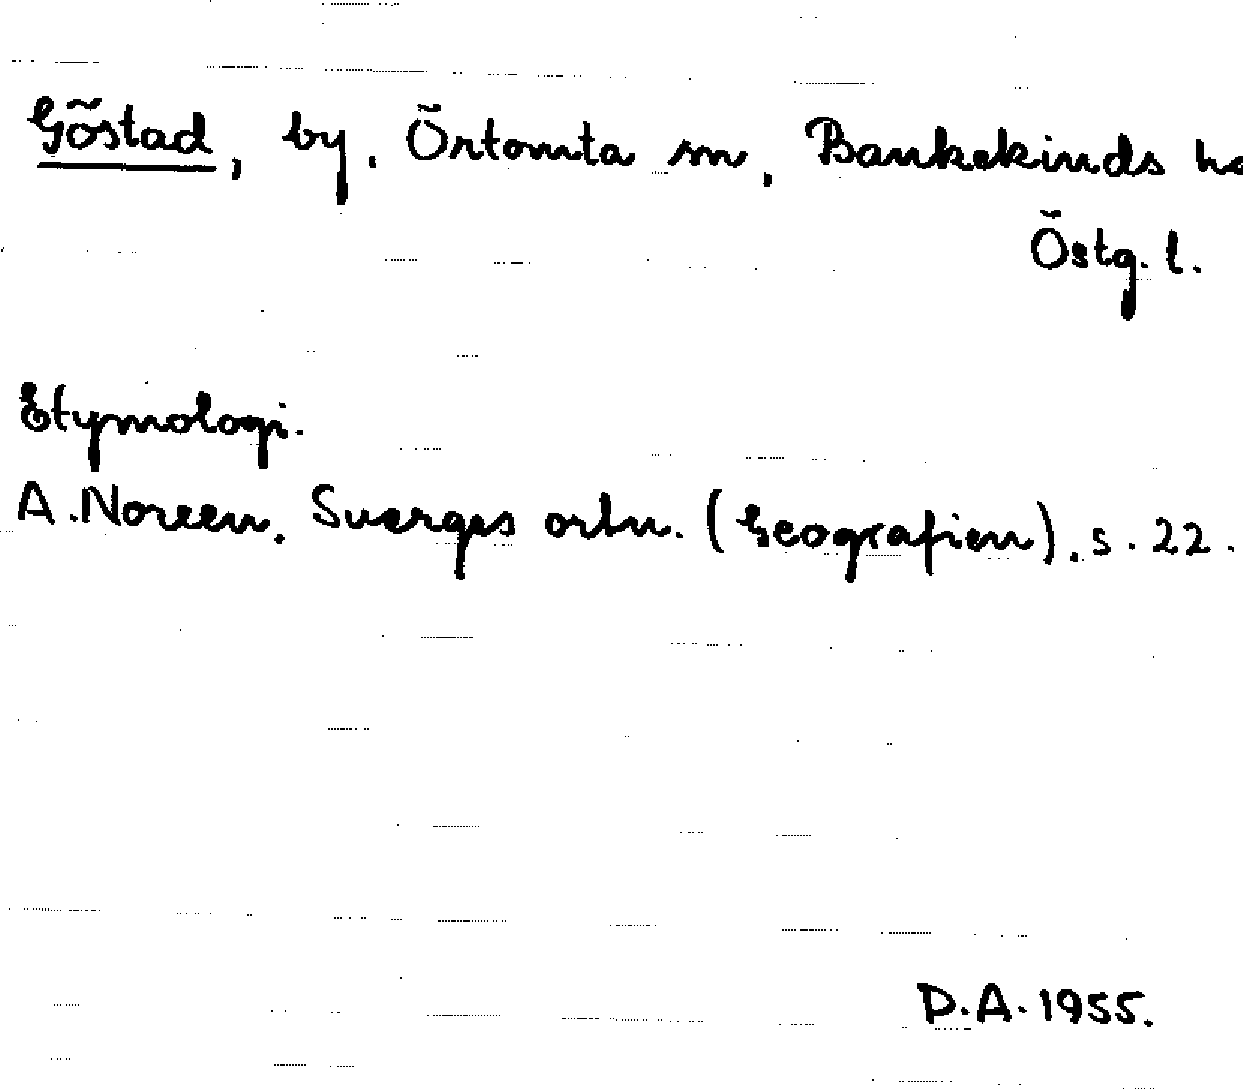 Göstad, by, Örtomta sn, Bankekinds hd
Östg. l.
Etymologi.
A. Noreen. Sverges ortn. (Geografien). s. 22.
D.A. 1955.